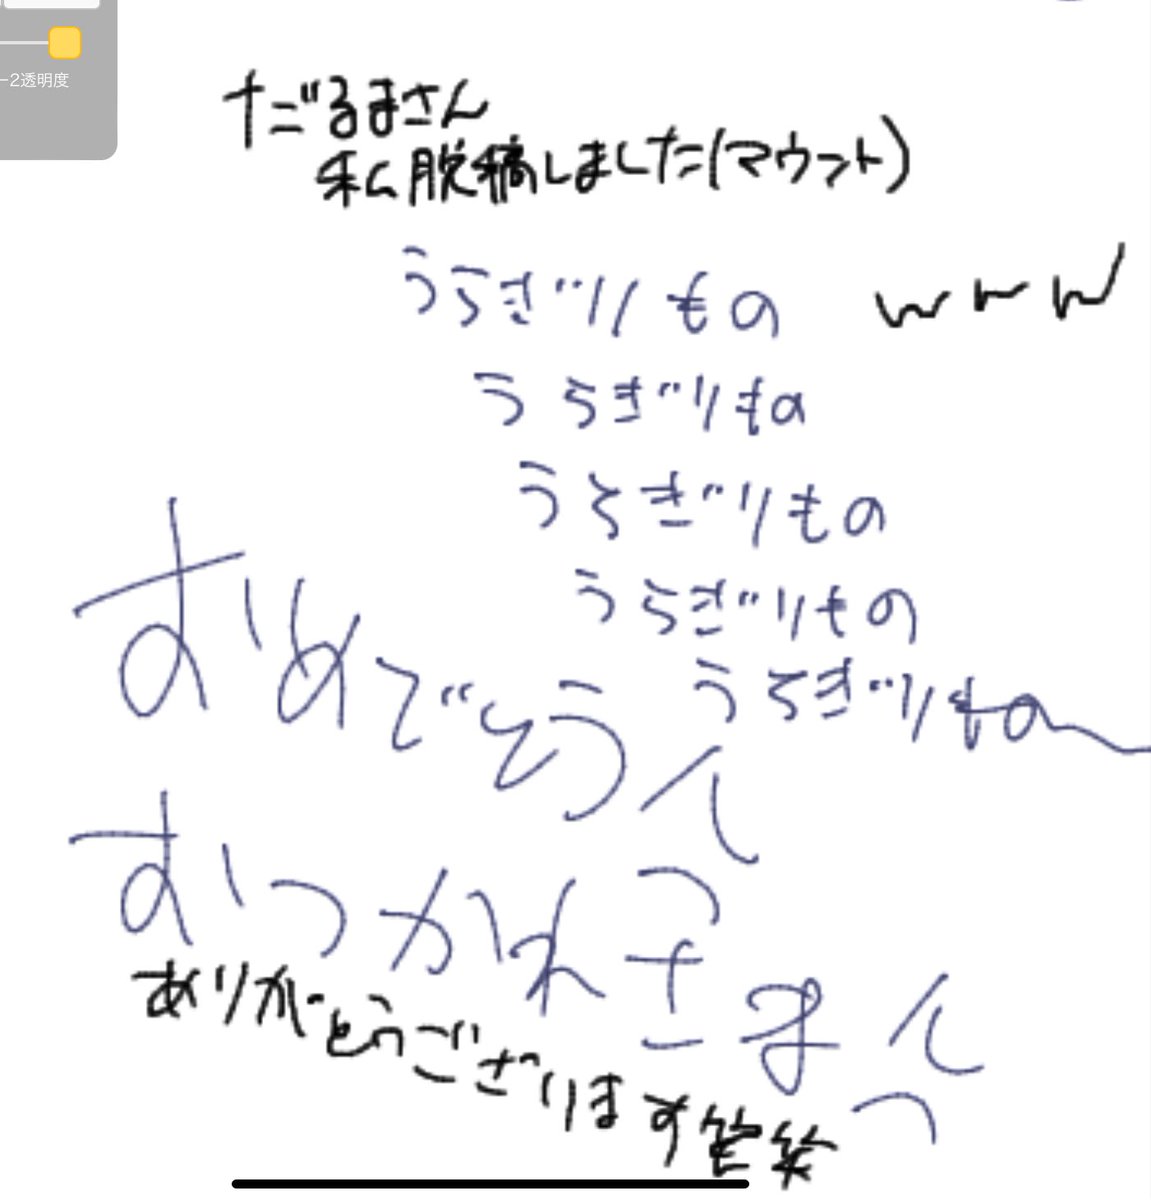 -2透明度
だるまさん
私脱稿しました(マウント)
うらぎりもの
www
うらぎりもの
うらぎりもの
うらぎりもの
うらぎりもの
おめでとう
おつかれさま
ありがとうございます